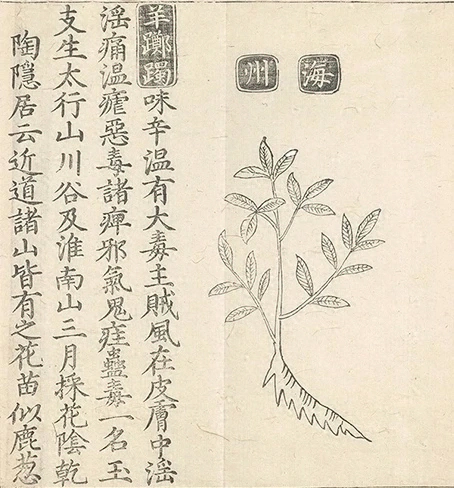 海州
羊躑躅味辛温有大毒主賊風在皮膚中滛
滛痛温瘧惡毒諸痺邪氣鬼疰蠱毒一名玉
支生太行山川谷及淮南山三月採花陰乾
陶隱居云近道諸山皆有之花苗似鹿葱